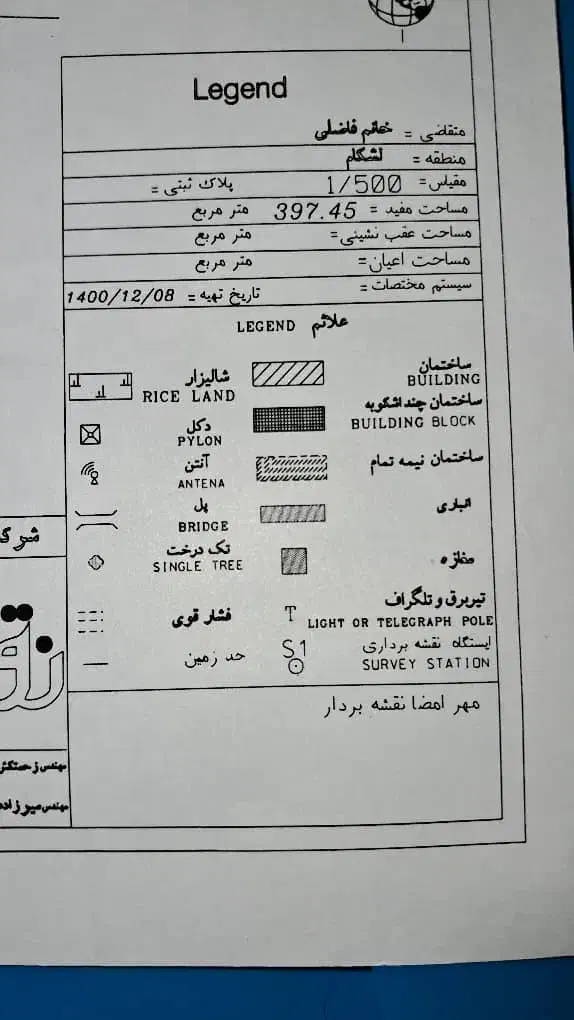 Legend
متقاضی = خانم فاضلی
منطقه = لشکام
مقیاس= 1/500 پلاک ثبتی =
مساحت مفید = 397.45 متر مربع
مساحت عقب نشینی= متر مربع
مساحت اعیان= متر مربع
سیستم مختصات= تاریخ تهیه = 1400/12/08
علائم LEGEND
ساختمان
BUILDING
ساختمان چند اشکوبه
BUILDING BLOCK
ساختمان نیمه تمام
انباری
مغازه
تیربرق و تلگراف
T LIGHT OR TELEGRAPH POLE
ایستگاه نقشه برداری
S1 SURVEY STATION
شالیزار
RICE LAND
دکل
PYLON
آنتن
ANTENA
پل
BRIDGE
تک درخت
SINGLE TREE
فشار قوی
حد زمین
مهر امضا نقشه بردار
مهندس زحمتکش